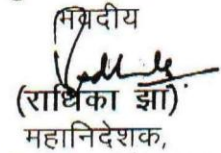 भवदीय
(राधिका झा)
महानिदेशक,